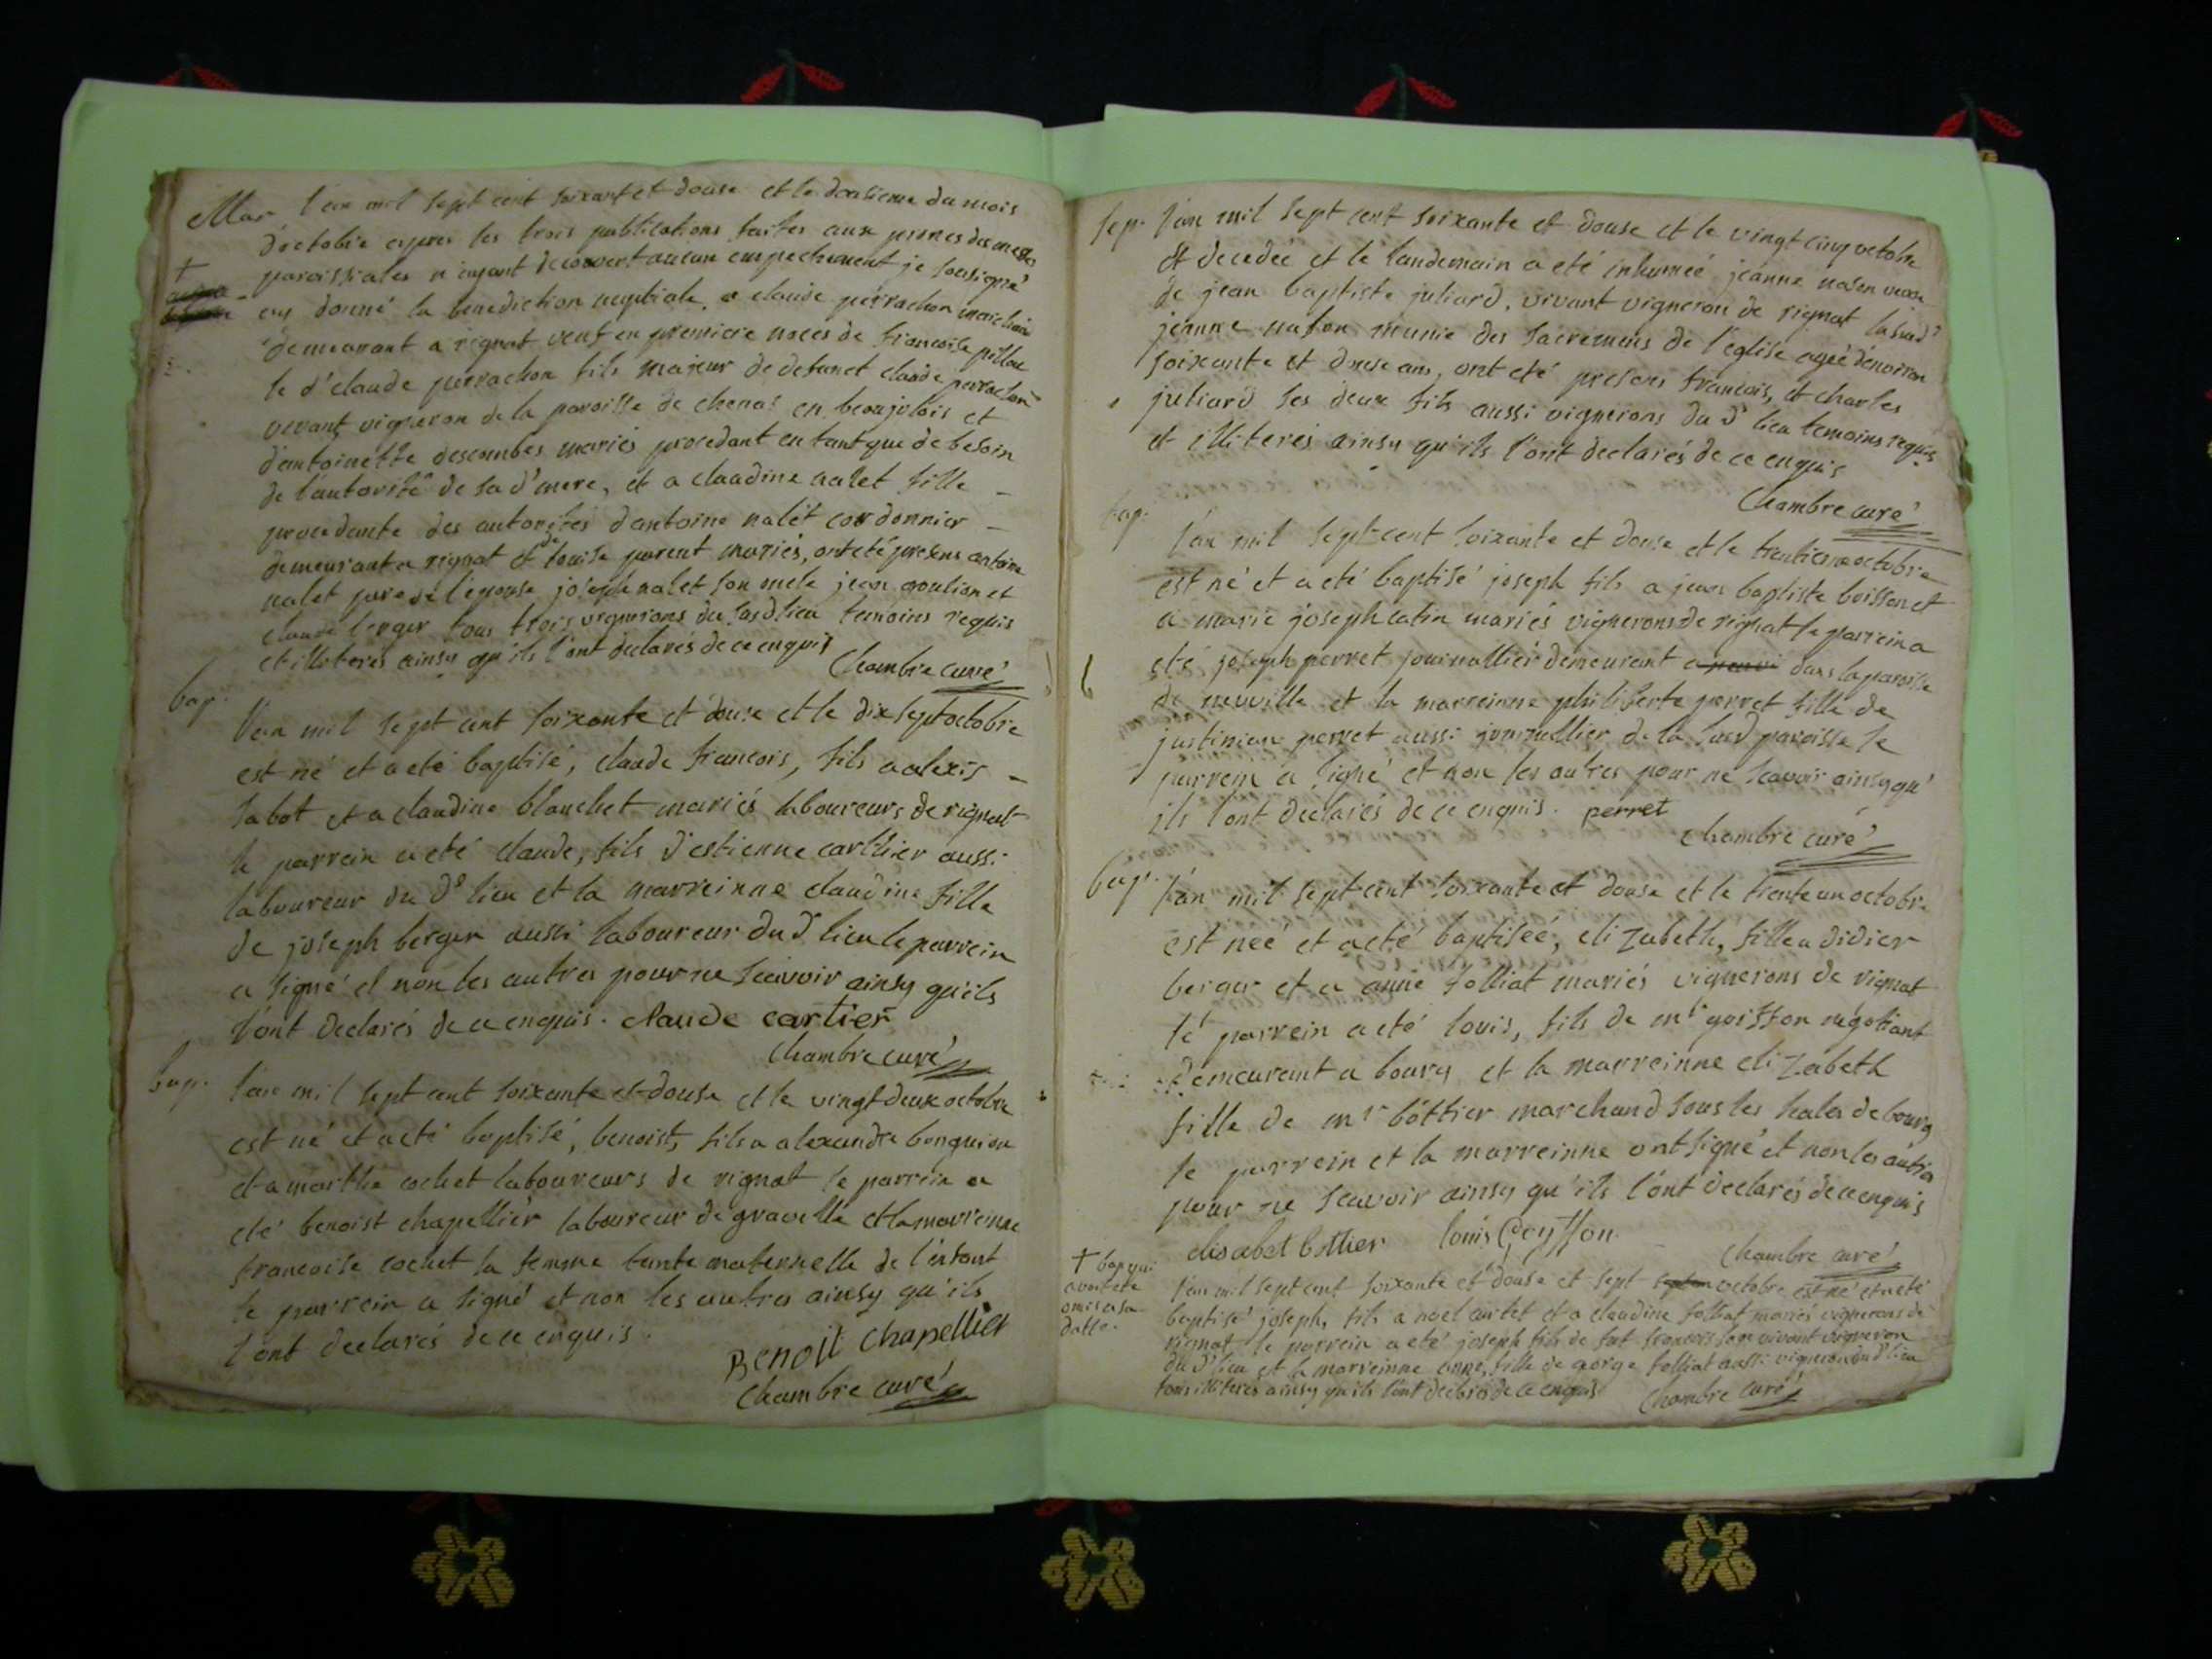 Mar. l'an mil sept cent soixant et douse et le dousieme du mois
d'octobre apres les trois publications faites aux prones des messes
paroissiales n'ayant decouvert aucun empechement je soussigné
ay donné la benediction nuptiale a claude perrachon
demeurant a rignat veuf en premiere noces de francoise pillou
le d' claude perrachon fils majeur de defunct claude perrachon
vivant vigneron de la paroisse de chenas en beaujolois et
d'antoinette descombes mariés procedant en tant que de besoin
de l'autorité de sa d' mere, et a claudine nalet fille
procedante des autorités d'antoine nalet cordonnier
demeurant a rignat et de louise parent mariés, ont eté presens antoine
nalet pere de l'epouse joseph nalet son oncle jean goulion et
claude berger tous trois vignerons du susd lieu temoins requis
et illiterés ainsy qu'ils l'ont declarés de ce enquis
Chambre curé
bap.
l'an mil sept cent soixante et douse et le dix sept octobre
est né et a eté baptisé, claude francois, fils a alexis
sabot et a claudine blanchet mariés laboureurs de rignat
le parrein a eté claude, fils d'estienne carthier aussi
laboureur du d' lieu et la marreinne claudine fille
de joseph berger aussi laboureur dud lieu le parrein
a signé et non les autres pour ne scavoir ainsy qu'ils
l'ont declarés de ce enquis. claude cartier
Chambre curé
bap. l'an mil sept cent soixante et douse et le vingt deux octobre
est né et a eté baptisé, benoist, fils a alexandre bonguion
et a marthe cochet laboureurs de rignat le parrein a
eté benoist chapellier laboureur de gravelle et la marreinne
francoise cochet sa femme tante maternelle de l'enfant
le parrein a signé et non les autres ainsy qu'ils
l'ont declarés de ce enquis.
Benoit chapellier
Chambre curé
sep. l'an mil sept cent soixante et douse et le vingt cinq octobre
est decedée et le landemain a eté inhumeé jeanne nason veuve
de jean baptiste juliard, vivant vigneron de rignat la sud'
jeanne nason munie des sacremens de l'eglise ageé d'enoiron
soixante et douse ans, ont eté presens francois, et charles
juliard ses deux fils aussi vignerons du d' lieu temoins requis
et illiterés ainsy qu'ils l'ont declarés de ce enquis
Chambre curé
bap.
l'an mil sept cent soixante et douse et le trentieme octobre
est né et a eté baptisé joseph fils a jean baptiste boisson et
a marie joseph catin mariés vignerons de rignat le parrein a
eté joseph perret journallier demeurant dans la paroisse
de neuville et la marreinne philiberte perret fille de
justinian perret aussi journallier de la susd paroisse le
parrein a signé et non les autres pour ne scavoir ainsy qu'
ils l'ont declarés de ce enquis. perret
Chambre curé
bap. l'an mil sept cent soixante et douse et le trente un octobre
est neé et a eté baptiseé, elizabeth, fille a didier
berger et a anne folliat mariés vignerons de rignat
le parrein a eté louis, fils de mr goiffon negotiant
demeurant a bourg et la marreinne elizabeth
fille de mr bottier marchand sous les hales de bourg
le parrein et la marreinne ont signé et non les autres
pour ne scavoir ainsy qu'ils l'ont declarés de ce enquis
elisabet bottier louis Goyffon
Chambre curé
+ bap. qui
avoit eté
omis a sa
datte.
l'an mil sept cent soixante et douse et sept octobre est né et a eté
baptisé joseph, fils a noel autet et a claudine folliat mariés vignerons de
rignat le parrein a eté joseph fils de fut francois vivant vigneron
du d' lieu et la marreinne anne, fille de george folliat aussi vigneron du d' lieu
tous illiterés ainsy qu'ils l'ont declarés de ce enquis Chambre curé